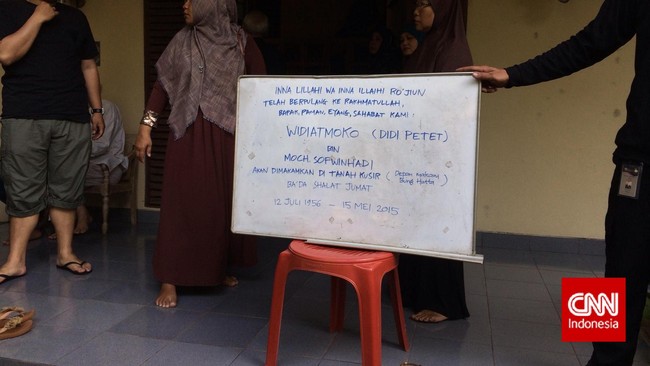 INNA LILLAHI WA INNA ILLAIHI RO'JIUN
TELAH BERPULANG KE RAKHMATULLAH,
BAPAK, PAMAN, EYANG, SAHABAT KAMI :
WIDIATMOKO (DIDI PETET)
BIN
MOCH. SOFWINHADI
AKAN DIMAKAMKAN DI TANAH KUSIR (Depan makam Bung Hatta)
BA'DA SHALAT JUMAT
12 JULI 1956 — 15 MEI 2015
CNN
Indonesia